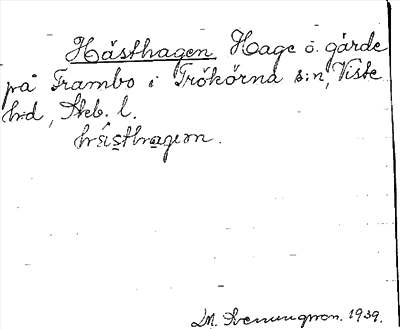 Hästhagen Hage o. gärde
på Frambo i Trökörna s:n, Viste
hd, Skb. l.
hästhagem.
M. Svenungson. 1939.